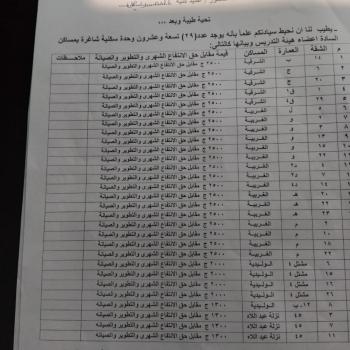 تحية طيبة وبعد ...
يطيب لنا أن نحيط سيادتكم علماً بأنه يوجد عدد(٢٩) تسعة وعشرون وحدة سكنية شاغرة بمساكن
السادة أعضاء هيئة التدريس وبيانها كالتالي:
م الشقة العمارة المساكن قيمة مقابل حق الانتفاع الشهرى والتطوير والصيانة ملاحظات
١ ١٤ ب الشرقية ٢٥٠٠ ج مقابل حق الانتفاع الشهرى والتطوير والصيانة
٢ ٦ ج الشرقية ٢٥٠٠ ج مقابل حق الانتفاع الشهرى والتطوير والصيانة
٣ ٢٠ ج الشرقية ٢٥٠٠ ج مقابل حق الانتفاع الشهرى والتطوير والصيانة
٤ ١ ق١ الشرقية ٢٥٠٠ ج مقابل حق الانتفاع الشهرى والتطوير والصيانة
٥ ٢٩ الشرقية ٢٥٠٠ ج مقابل حق الانتفاع الشهرى والتطوير والصيانة
٦ ٢ ل الغربية ٢٥٠٠ ج مقابل حق الانتفاع الشهرى والتطوير والصيانة
٧ ٥ و الغربية ٢٥٠٠ ج مقابل حق الانتفاع الشهرى والتطوير والصيانة
و الغربية ٢٥٠٠ ج مقابل حق الانتفاع الشهرى والتطوير والصيانة
٢٠ و الغربية ٢٥٠٠ ج مقابل حق الانتفاع الشهرى والتطوير والصيانة
١٥ و الغربية ٢٥٠٠ ج مقابل حق الانتفاع الشهرى والتطوير والصيانة
١٢ الغربية ٢٥٠٠ ج مقابل حق الانتفاع الشهرى والتطوير والصيانة
٧ د٢ الغربية ٢٥٠٠ ج مقابل حق الانتفاع الشهرى والتطوير والصيانة
١٤ د٤ الغربية ٢٥٠٠ ج مقابل حق الانتفاع الشهرى والتطوير والصيانة
٢٠ هـ الغربية ٢٥٠٠ ج مقابل حق الانتفاع الشهرى والتطوير والصيانة
٢٢ هـ الغربية ٢٥٠٠ ج مقابل حق الانتفاع الشهرى والتطوير والصيانة
٢٣ هـ الغربية ٢٥٠٠ ج مقابل حق الانتفاع الشهرى والتطوير والصيانة
٢ م الغربية ٢٥٠٠ ج مقابل حق الانتفاع الشهرى والتطوير والصيانة
١٠ م الغربية ٢٥٠٠ ج مقابل حق الانتفاع الشهرى والتطوير والصيانة
١٨ م الغربية ٢٥٠٠ ج مقابل حق الانتفاع الشهرى والتطوير والصيانة
٢٢ م الغربية ٢٥٠٠ ج مقابل حق الانتفاع الشهرى والتطوير والصيانة
٦ مشتل ٤ الوليدية ٢٥٠٠ ج مقابل حق الانتفاع الشهرى والتطوير والصيانة
١٦ مشتل ٤ الوليدية ٢٥٠٠ ج مقابل حق الانتفاع الشهرى والتطوير والصيانة
٢١ مشتل ٤ الوليدية ٢٥٠٠ ج مقابل حق الانتفاع الشهرى والتطوير والصيانة
٨ ١٢ ب الوليدية ٢٥٠٠ ج مقابل حق الانتفاع الشهرى والتطوير والصيانة
٣ ٤٥ نزلة عبد اللاه ١٣٠٠ ج مقابل حق الانتفاع الشهرى والتطوير والصيانة
٤٥ نزلة عبد اللاه ١٣٠٠ ج مقابل حق الانتفاع الشهرى والتطوير والصيانة
١١ ٤٥ نزلة عبد اللاه ١٣٠٠ ج مقابل حق الانتفاع الشهرى والتطوير والصيانة